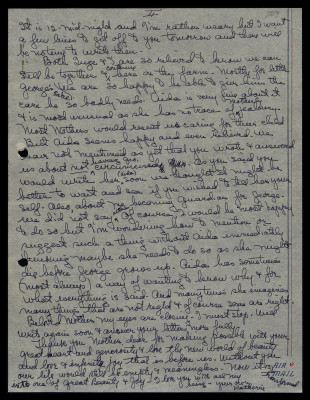 II
It is 12 mid-night and I'm rather weary but I want
a few lines to get off to you tomorrow and there will
be no time to write then.
Both Inge & I are so relieved to know we can
still be together & continue here on the farm. Mostly for little
George. We are so happy to be able to give him the
care he so badly needs. Aida is very fine about it
& is most unusual as she has no trace of jealousy.
Most mothers would resent us caring for their child
But Aida seems happy and even relieved. We
have not mentioned as yet that you wrote & answered
us about not circumcising him. As you said you
would write her soon we thought it might be
better to wait and see if you wished to tell her your
self. Also about my becoming guardian for George
we did not say. Of course I would be most happy
to do so but I'm wondering how to mention or
suggest such a thing without Aida immediately
thinking maybe she needs to do so as she might
die before George grows up. Aida has sometimes
(most always) a way of wanting to know why & for
what everything is said. And many times she imagines
many things that are not right & of course some are right.
Beloved Mother my eyes are closing. I must stop. Will
write again soon & answer your letter more fully.
Thank you Mother dear for making possible with your
great heart and generosity & love the new world of beauty
and love & infinite joy that is before us. Without you
our life would still be empty & meaningless. Now it is
with one of great beauty & joy. I love you with all my
being - your own
Katherine
AIR
MAIL